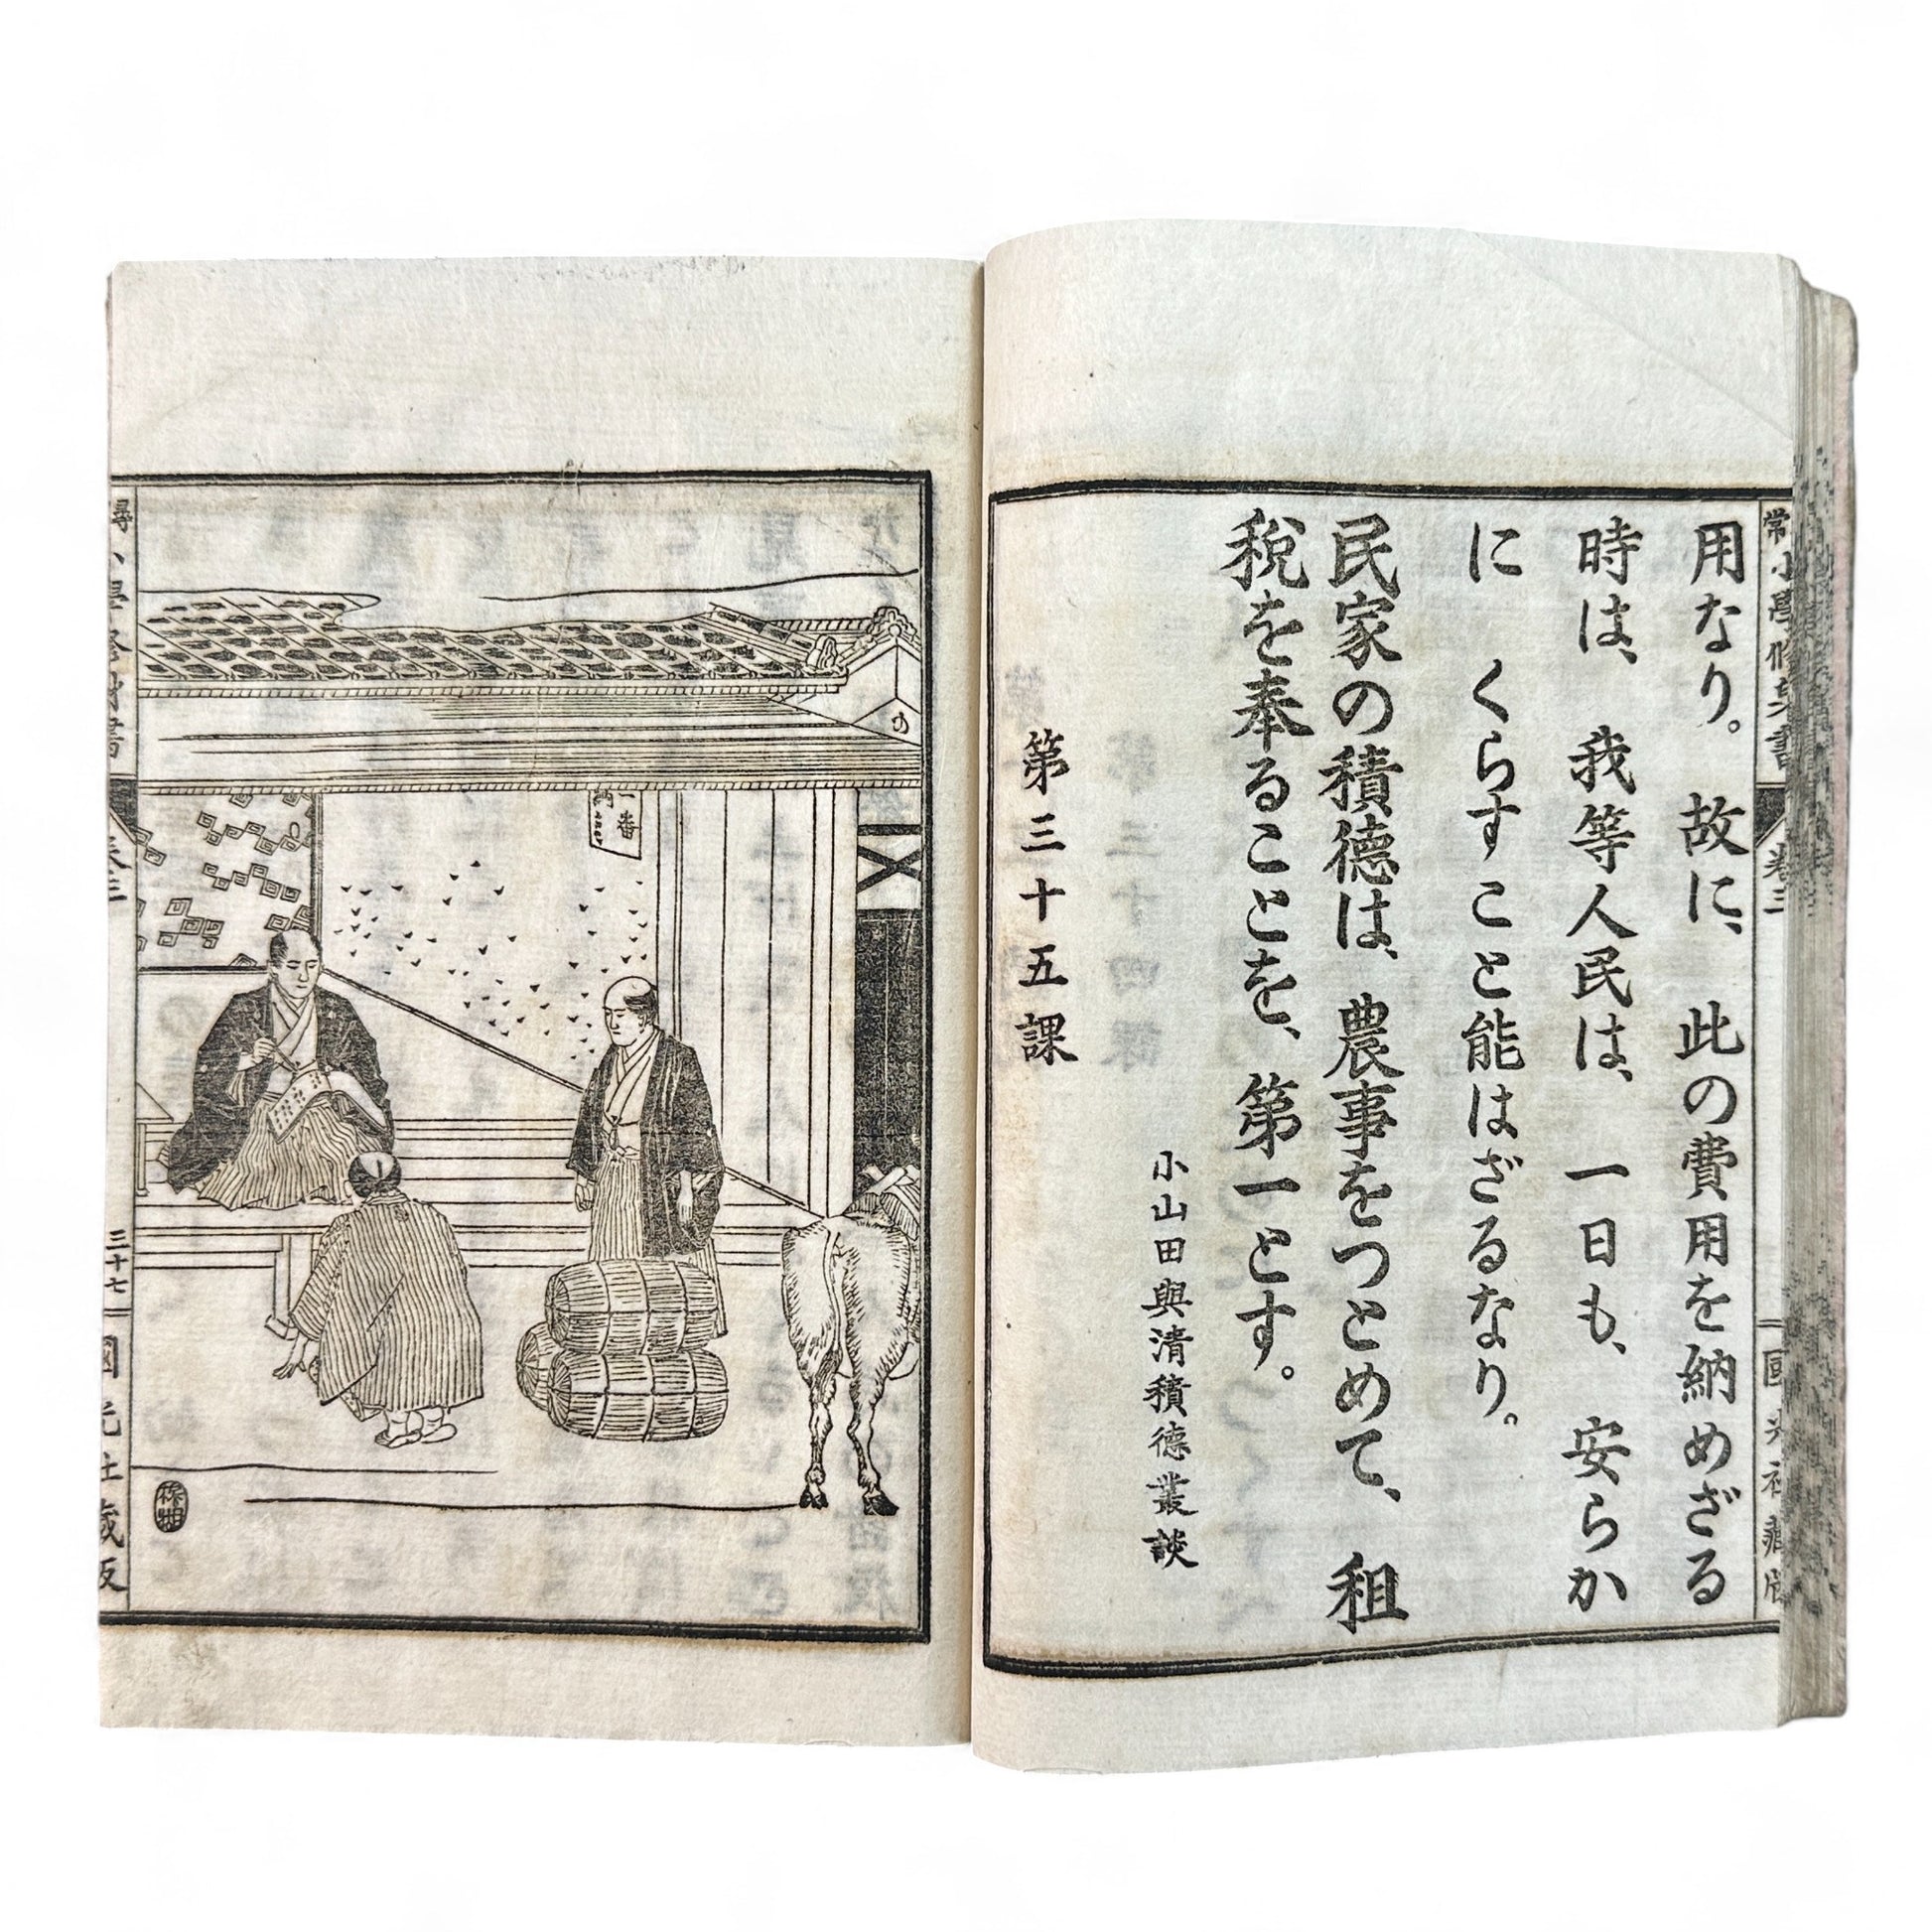 用なり。故に、此の費用を納めざる
時は、我等人民は、一日も、安らか
に くらすこと能はざるなり。
民家の積德は、農事をつとめて、租
税を奉ることを、第一とす。
小山田與清積德叢談
第三十五課
常小學修身書
卷三
國光社藏版
一番
尋
小學修身書
卷三
三十七
國光社藏版